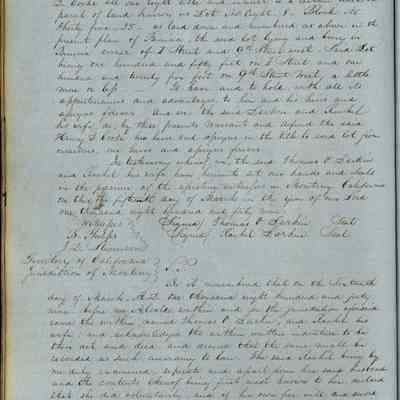 D. Cooke all our right title and interest in a certain
parcel of land known as Lot No Eight 8 - Block No
thirty five 35 - as laid down and numbered as above in the
present plan of Benicia the said Lot lying and being in
Benicia corner of I Street and 9th Street west. Said Lot
being one hundred and fifty feet on I Street and one
hundred and twenty five feet on 9th Street West, a little
more or less. - To have and to hold with all its
appurtenances and advantages to him and his heirs and
assigns forever. And we the said Larkin and Rachel
his wife do by these presents warrant and defend the said
Henry D Cooke his heirs and assigns in the title to said lot from
ourselves, our heirs and assigns forever
In testimony whereof we, the said Thomas O. Larkin
and Rachel his wife have hereunto set our hands and seals
in the presence of the subscribing witnesses in Monterey California
on this the fifteenth day of March in the year of our Lord
one thousand eight hundred and forty nine
Witnesses Signed Thomas O Larkin Seal
Signed Rachel Larkin Seal
J. L.
Territory of California
Jurisdiction of Monterey
Be it remembered that on the Sixteenth
day of March A.D. one thousand eight hundred and forty
nine before me Alcalde within and for the jurisdiction aforesaid
came the within named Thomas O. Larkin, and Rachel his
wife, and acknowledged the within written indenture to be
their act and deed and desired that the same might be
recorded as such according to law. The said Rachel being by
me duly examined, separate and apart from her said husband
and the contents thereof being first made known to her, declared
that she did voluntarily and of her own free will and accord